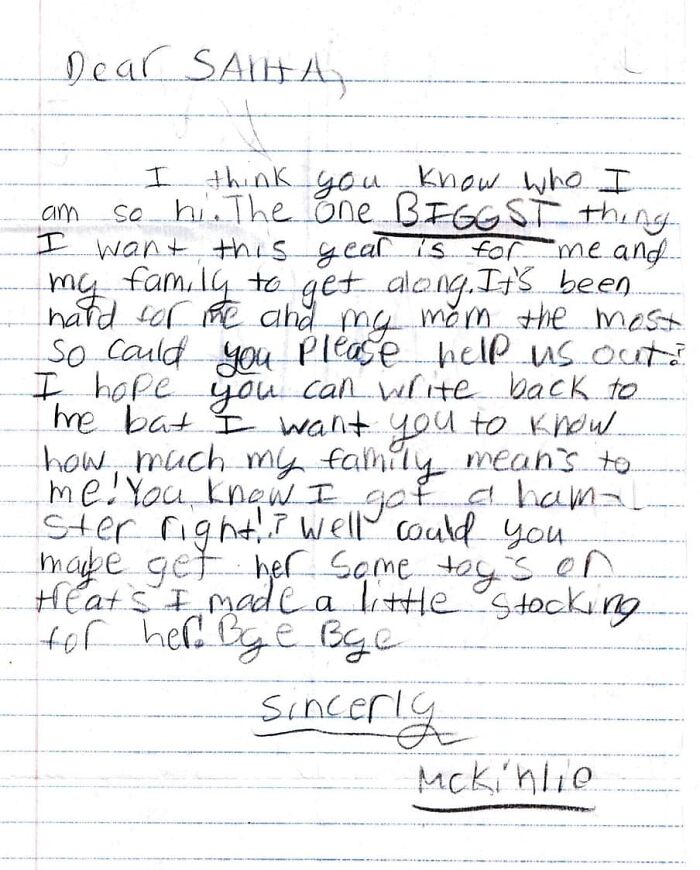 Dear SANTA,
I think you know who I
am so hi. The one BIGGST thing
I want this year is for me and
my family to get along. It's been
hard for me and my mom the most
so could you please help us out?
I hope you can write back to
me bat I want you to know
how much my family mean's to
me! You know I got a ham-
ster right!? Well could you
maybe get her some toy's or
treat's I made a little stocking
for her! Bye Bye
sincerly
McKinlie